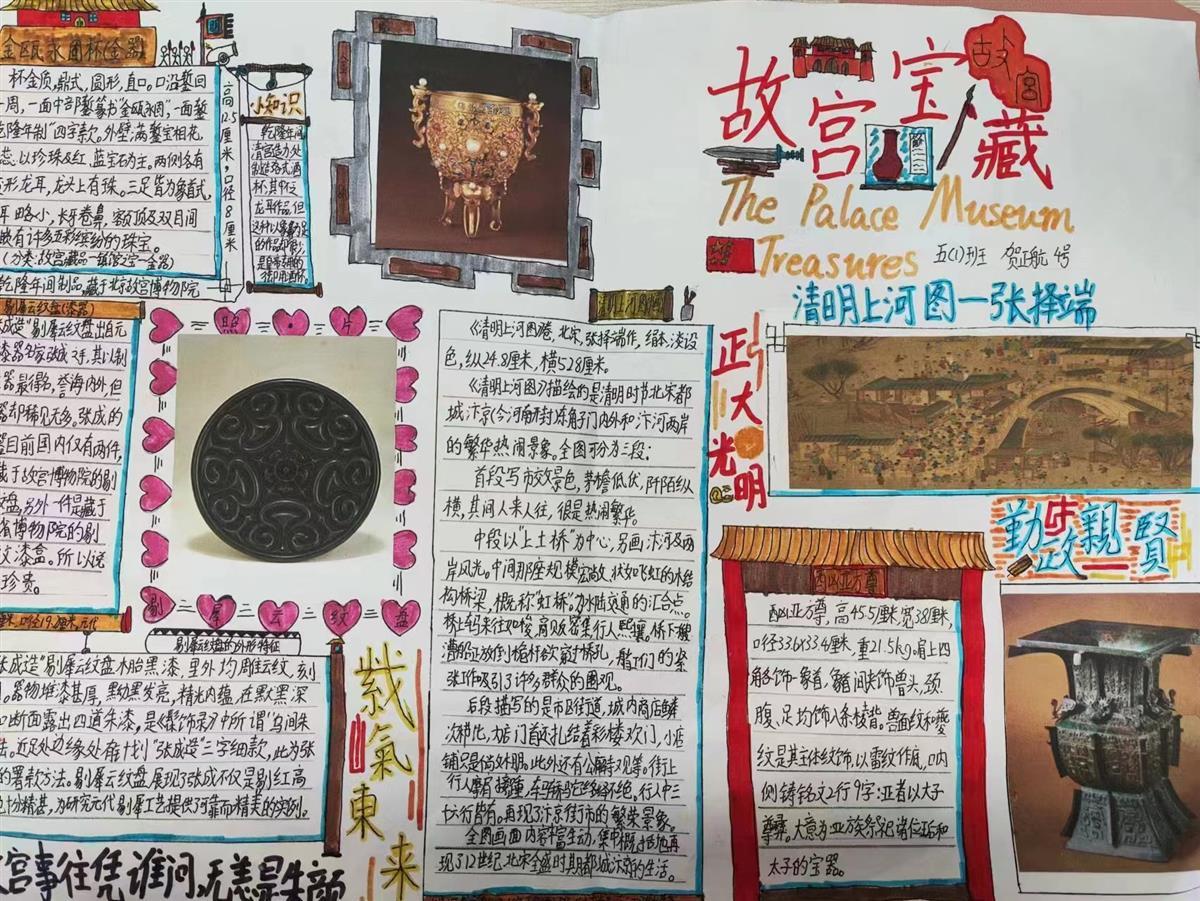 故宫宝藏
故宫
The Palace Museum
Treasures
五(1)班 贺正航 4号
金瓯永固杯(金器)
杯金质,鼎式,圆形,直口。口沿錾回
一周,一面中部錾篆书"金瓯永固",一面錾
乾隆年制"四字款。外壁满錾宝相花,
蕊以珍珠及红、蓝宝石为主。两侧各有
形龙耳,龙头上有珠。三足皆为象首式,
耳略小,长牙卷鼻,额顶及双目间
嵌有许多五彩缤纷的珠宝。
乾隆年间制品,藏于北京故宫博物院
高12.5厘米,口径8厘米
小知识
乾隆年间
清宫造办处
制造各式酒
杯,其中不乏
龙耳作品,但
剔犀云纹盘(漆器)
张成造"剔犀云纹盘出自元
漆器名家张成之手,其以制
器最得名,誉海内外,但
器却稀见无多。张成的
器目前国内仅有两件,
藏于故宫博物院的剔
盘,另外一件是藏于
省博物院的剔
文漆盒。所以说
珍贵。
照·片
剔犀云纹盘
剔犀云纹盘的外形特征
张成造"剔犀云纹盘木胎黑漆,里外均雕云纹,刻
。器物堆漆甚厚,黝黑发亮,精光内蕴,在黝黑深
断面露出四道朱漆,是《髹饰录》中所谓"乌间朱
法。近足处边缘处锥划"张成造"三字细款,此为张
的署款方法。剔犀云纹盘展现了张成不仅是剔红高
也十分精甚,为研究元代剔犀工艺提供了可靠而精美的实例。
宫事往凭谁问,无恙是朱颜
紫气東来
清明上河图
《清明上河图》卷,北宋,张择端作,绢本,淡设
色,纵24.8厘米,横528厘米。
《清明上河图》描绘的是清明时节北宋都
城汴京(今河南开封)东角子门内外和汴河两岸
的繁华热闹景象。全图可分为三段:
首段写市郊景色,茅檐低伏,阡陌纵
横,其间人来人往,很是热闹繁华。
中段以"上土桥"为中心,另画汴河及两
岸风光。中间那座规模宏敞、状如飞虹的木结
构桥梁,概称"虹桥"。为水陆交通的汇合点。
桥上车马来往如梭,肩贩密集,行人熙攘,桥下
张工作吸引了许多群众的围观。
后段描写的是市区街道,城内商店鳞
次栉比,大店门首还扎结着彩楼欢门,小店
行人摩肩接踵,车马轿驼络绎不绝。行人中三
六行皆有。再现了汴京街市的繁荣景象。
全图画面内容丰富生动,集中概括地再
现了12世纪北宋全盛时期都城汴京的生活。
正大光明
清明上河图—张择端
勤政親賢
酗亚方尊
酗亚方尊,高45.5厘米,宽38厘米,
口径33.6×33.4厘米,重21.5kg。肩上四
角各饰一象首,象首间装饰兽头,颈、
腹、足均饰八条棱脊。兽面纹和夔
纹是其主体纹饰,以雷纹作底,口内
侧铸铭文2行9字:亚者以大子
尊彝。大意为亚族祭祀诸位后和
太子的宝器。